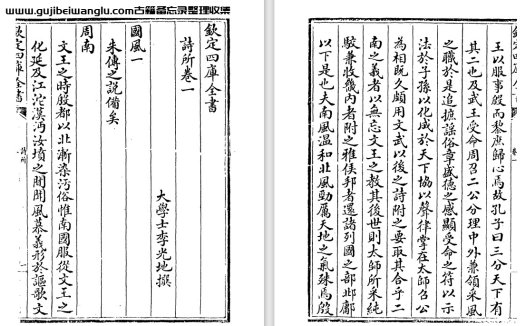 www.gujibeiwanglu.com古籍备忘录整理收集
欽定四庫全書
詩所卷一
大學士李光地撰
國風一
朱傳之說備矣
周南
文王之時殷都以北漸染汚俗惟南國服從文王之
化延及江沱漢沔汝墳之間聞風慕義形於謳歌文
欽定四庫全書
詩所
欽定四庫全書
王以服事殷而黎庶歸心焉故孔子曰三分天下有
其二也及武王受命周召二公分理中外兼領采風
之職於是追摭謡俗章盛德之感顯受命之符以示
法於子孫以化成於天下協以聲律掌在太師召公
為相既久頗用文武以後之詩附之要取其合乎二
南之義者以無忘文王之教其後世則太師所采純
駁兼收畿內者附之雅侯邦者還諸列國之部邶鄘
以下是也夫南風温和北風勁厲天地之氣殊焉殷